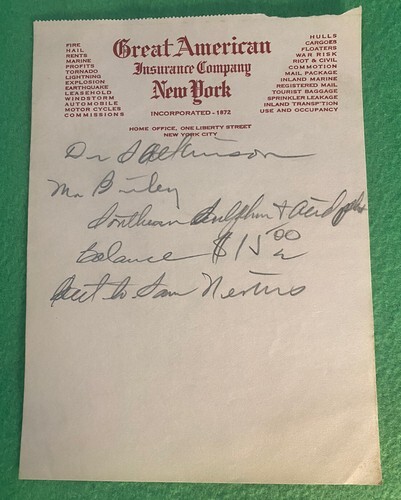 FIRE
HAIL
RENTS
MARINE
PROFITS
TORNADO
LIGHTNING
EXPLOSION
EARTHQUAKE
LEASEHOLD
WINDSTORM
AUTOMOBILE
MOTOR CYCLES
COMMISSIONS
Great American
Insurance Company
New York
INCORPORATED - 1872
HOME OFFICE, ONE LIBERTY STREET
NEW YORK CITY
HULLS
CARGOES
FLOATERS
WAR RISK
RIOT & CIVIL
COMMOTION
MAIL PACKAGE
INLAND MARINE
REGISTERED MAIL
TOURIST BAGGAGE
SPRINKLER LEAKAGE
INLAND TRANSP'TION
USE AND OCCUPANCY
Dr
Mr
Southern Sulphur & Acid
balance $15 00
to Sam